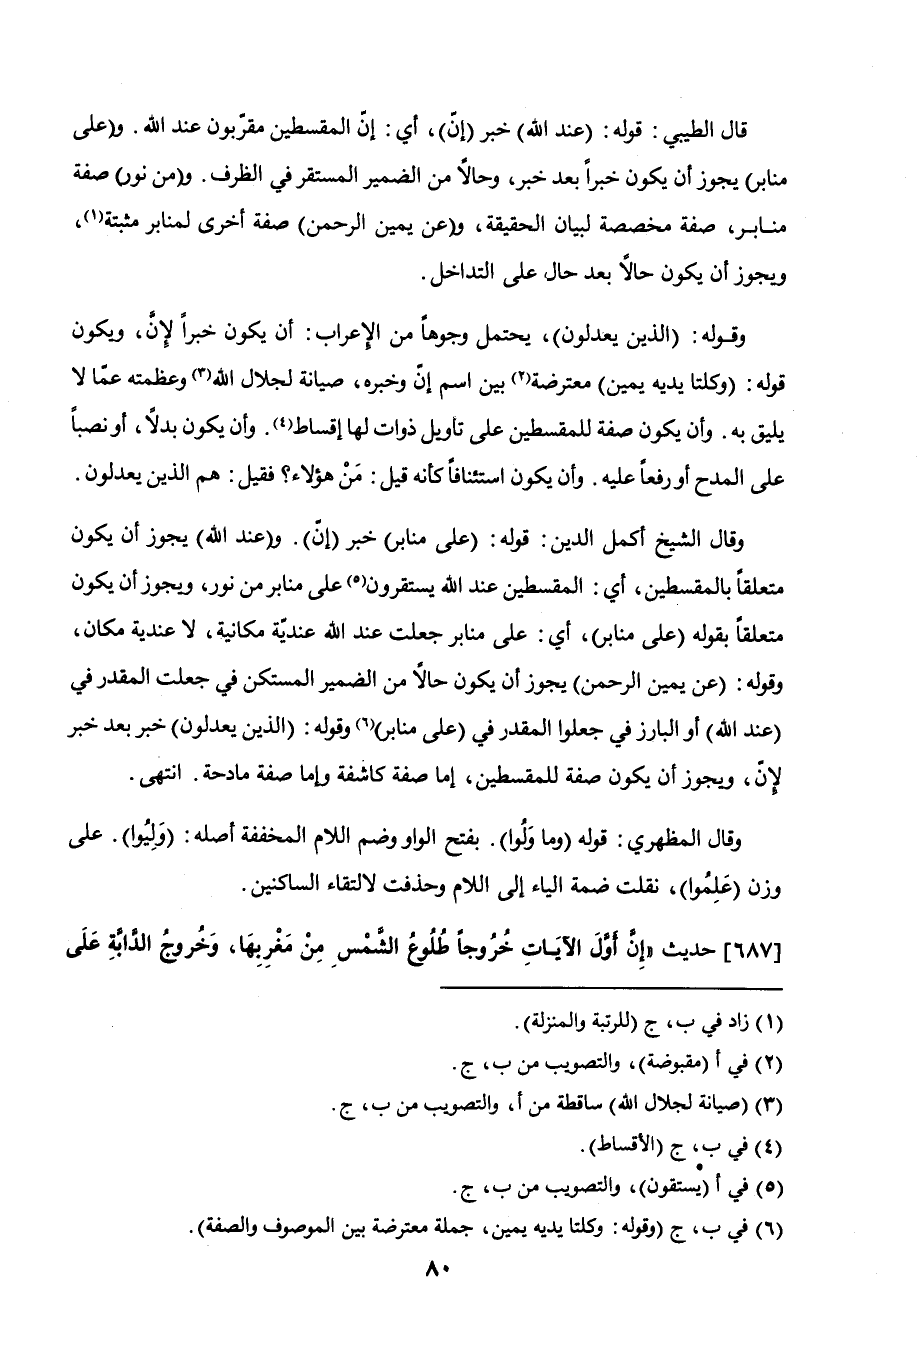 قال الطيبي: قوله: (عند الله) خبر (إنّ)، أي: إنّ المقسطين مقرّبون عند الله. و(على
منابر) يجوز أن يكون خبراً بعد خبر، وحالاً من الضمير المستقر في الظرف. و(من نور) صفة
منـابـر، صفة مخصصة لبيان الحقيقة، و(عن يمين الرحمن) صفة أخرى لمنابر مثبتة(١)،
ويجوز أن يكون حالاً بعد حال على التداخل.
وقـوله: (الذين يعدلون)، يحتمل وجوهاً من الإعراب: أن يكون خبراً لإنَّ، ويكون
قوله: (وكلتا يديه يمين) معترضة(٢) بين اسم إنّ وخبره، صيانة لجلال الله(٣) وعظمته عمّا لا
يليق به. وأن يكون صفة للمقسطين على تأويل ذوات لها إقساط(٤). وأن يكون بدلاً، أو نصباً
على المدح أو رفعاً عليه. وأن يكون استئنافاً كأنه قيل: مَنْ هؤلاء؟ فقيل: هم الذين يعدلون.
وقال الشيخ أكمل الدين: قوله: (على منابر) خبر (إنّ). و(عند الله) يجوز أن يكون
متعلقاً بالمقسطين، أي: المقسطين عند الله يستقرون(٥) على منابر من نور، ويجوز أن يكون
متعلقاً بقوله (على منابر)، أي: على منابر جعلت عند الله عنديّة مكانية، لا عندية مكان،
وقوله: (عن يمين الرحمن) يجوز أن يكون حالاً من الضمير المستكن في جعلت المقدر في
(عند الله) أو البارز في جعلوا المقدر في (على منابر)(٦) وقوله: (الذين يعدلون) خبر بعد خبر
لإنّ، ويجوز أن يكون صفة للمقسطين، إما صفة كاشفة وإما صفة مادحة. انتهى.
وقال المظهري: قوله (وما وَلُوا). بفتح الواو وضم اللام المخففة أصله: (وَلِيُوا). على
وزن (عَلِمُوا)، نقلت ضمة الياء إلى اللام وحذفت لالتقاء الساكنين.
[٦٨٧] حديث «إِنَّ أَوَّلَ الآيَـاتِ خُرُوجاً طُلُوعُ الشَّمْسِ مِنْ مَغْرِبِهَا، وَخُروجُ الدَّابَّةِ عَلَى
(١) زاد في ب، ج (للرتبة والمنزلة).
(٢) في أ (مقبوضة)، والتصويب من ب، ج.
(٣) (صيانة لجلال الله) ساقطة من أ، والتصويب من ب، ج.
(٤) في ب، ج (الأقساط).
(٥) في أ (يستقون)، والتصويب من ب، ج.
(٦) في ب، ج (وقوله: وكلتا يديه يمين، جملة معترضة بين الموصوف والصفة).
٨٠